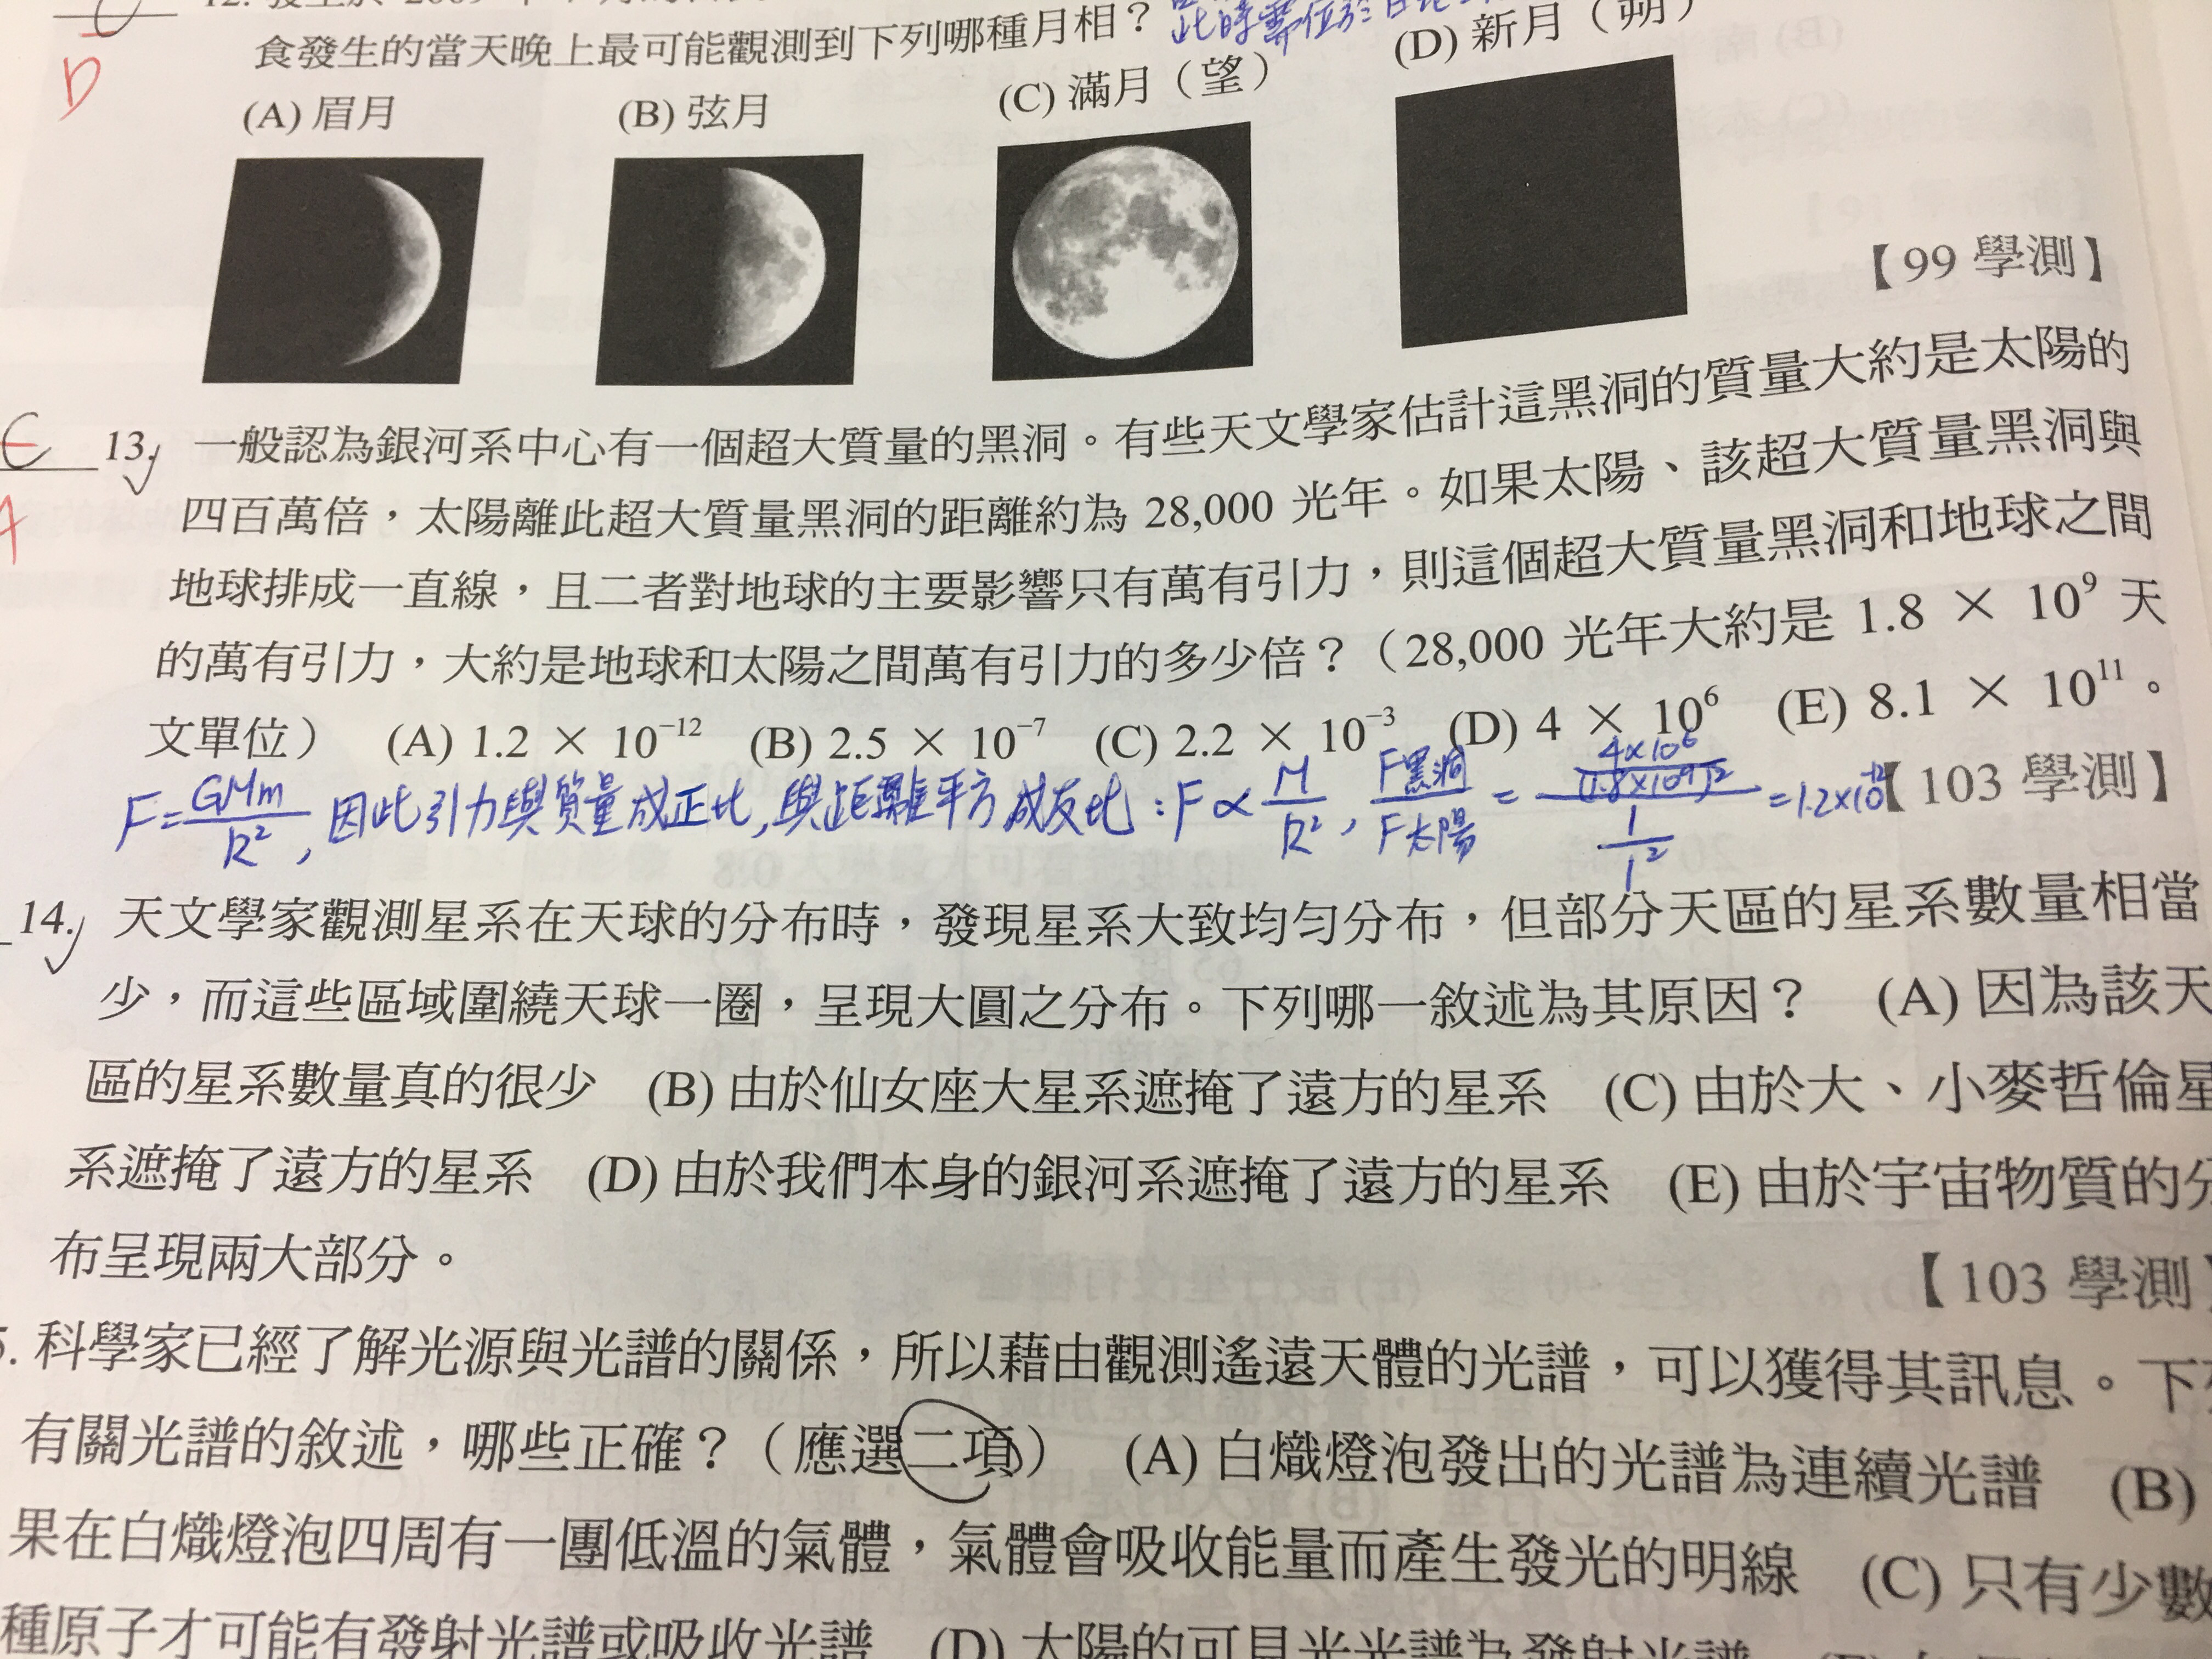 食發生的當天晚上最可能觀測到下列哪種月相？
(A) 眉月 (B) 弦月 (C) 滿月（望） (D) 新月（朔）
D
【99 學測】
E
A
13. 一般認為銀河系中心有一個超大質量的黑洞。有些天文學家估計這黑洞的質量大約是太陽的
四百萬倍，太陽離此超大質量黑洞的距離約為 28,000 光年。如果太陽、該超大質量黑洞與
地球排成一直線，且二者對地球的主要影響只有萬有引力，則這個超大質量黑洞和地球之間
的萬有引力，大約是地球和太陽之間萬有引力的多少倍？（28,000 光年大約是 1.8 × 10⁹ 天
文單位） (A) 1.2 × 10⁻¹² (B) 2.5 × 10⁻⁷ (C) 2.2 × 10⁻³ (D) 4 × 10⁶ (E) 8.1 × 10¹¹。
【103 學測】
F=GMm/R²，因此引力與質量成正比，與距離平方成反比：F∝M/R²，F黑洞/F太陽 = (4×10⁶/(1.8×10⁹)²)/(1/1²) =1.2×10⁻¹²
14. 天文學家觀測星系在天球的分布時，發現星系大致均勻分布，但部分天區的星系數量相當
少，而這些區域圍繞天球一圈，呈現大圓之分布。下列哪一敘述為其原因？ (A) 因為該天
區的星系數量真的很少 (B) 由於仙女座大星系遮掩了遠方的星系 (C) 由於大、小麥哲倫星
系遮掩了遠方的星系 (D) 由於我們本身的銀河系遮掩了遠方的星系 (E) 由於宇宙物質的分
布呈現兩大部分。
【103 學測】
5. 科學家已經了解光源與光譜的關係，所以藉由觀測遙遠天體的光譜，可以獲得其訊息。下列
有關光譜的敘述，哪些正確？（應選二項） (A) 白熾燈泡發出的光譜為連續光譜 (B)
果在白熾燈泡四周有一團低溫的氣體，氣體會吸收能量而產生發光的明線 (C) 只有少數
種原子才可能有發射光譜或吸收光譜 (D) 太陽的可見光光譜為發射光譜